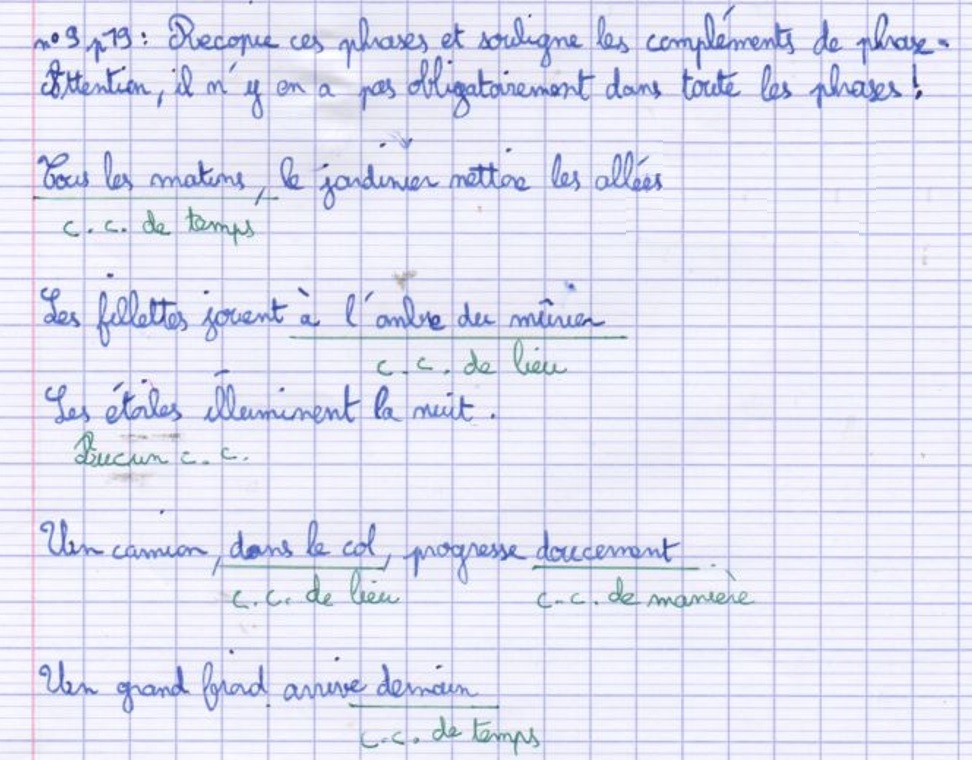 n°9 p79 : Recopie ces phrases et souligne les compléments de phrase.
Attention, il n'y en a pas obligatoirement dans toute les phrases !
Tous les matins, le jardinier nettoie les allées
c. c. de temps
Les fillettes jouent à l'ombre du mûrier
c. c. de lieu
Les étoiles illuminent la nuit.
Aucun c. c.
Un camion, dans le col, progresse doucement
c. c. de lieu c. c. de manière
Un grand froid arrive demain
c. c. de temps